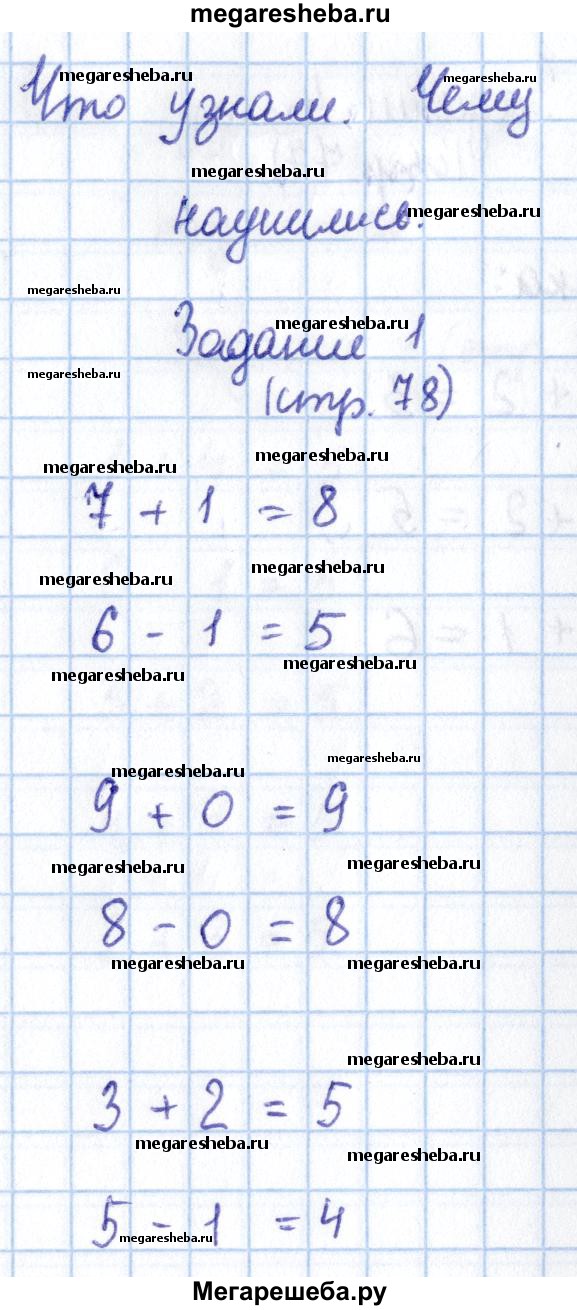 megaresheba.ru
megaresheba.ru megaresheba.ru
Что узнали. Чему
megaresheba.ru
научились.
megaresheba.ru
megaresheba.ru
megaresheba.ru
Задание 1
megaresheba.ru
(стр. 78)
megaresheba.ru
megaresheba.ru
7 + 1 = 8
megaresheba.ru
megaresheba.ru
6 - 1 = 5
megaresheba.ru
megaresheba.ru
megaresheba.ru
megaresheba.ru
9 + 0 = 9
megaresheba.ru
megaresheba.ru
8 - 0 = 8
megaresheba.ru megaresheba.ru
megaresheba.ru
3 + 2 = 5
megaresheba.ru
megaresheba.ru
5 - 1 = 4
megaresheba.ru
Мегарешеба.ру